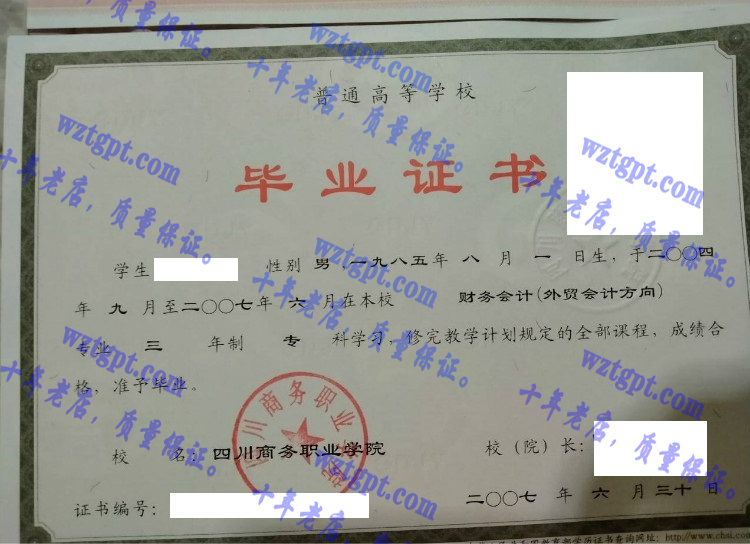 普通高等学校
毕业证书
学生 性别 男,一九八五年 八 月 一 日生,于二〇〇四
年 九 月至二〇〇七年 六 月在本校 财务会计(外贸会计方向)
专业 三 年制 专 科学习,修完教学计划规定的全部课程,成绩合
格,准予毕业。
四川商务职业学院
校 名:四川商务职业学院 校(院)长:
二〇〇七 年 六 月 三十 日
证书编号:
查询网址:http://www.chsi.
wztgpt.com
十年老店,质量保证。
wztgpt.com
十年老店,质量保证。
wztgpt.com
十年老店,质量保证。
wztgpt.com
十年老店,质量保证。
wztgpt.com
十年老店,质量保证。
wztgpt.com
十年老店,质量保证。
wztgpt.com
十年老店,质量保证。
wztgpt.com
十年老店,质量保证。